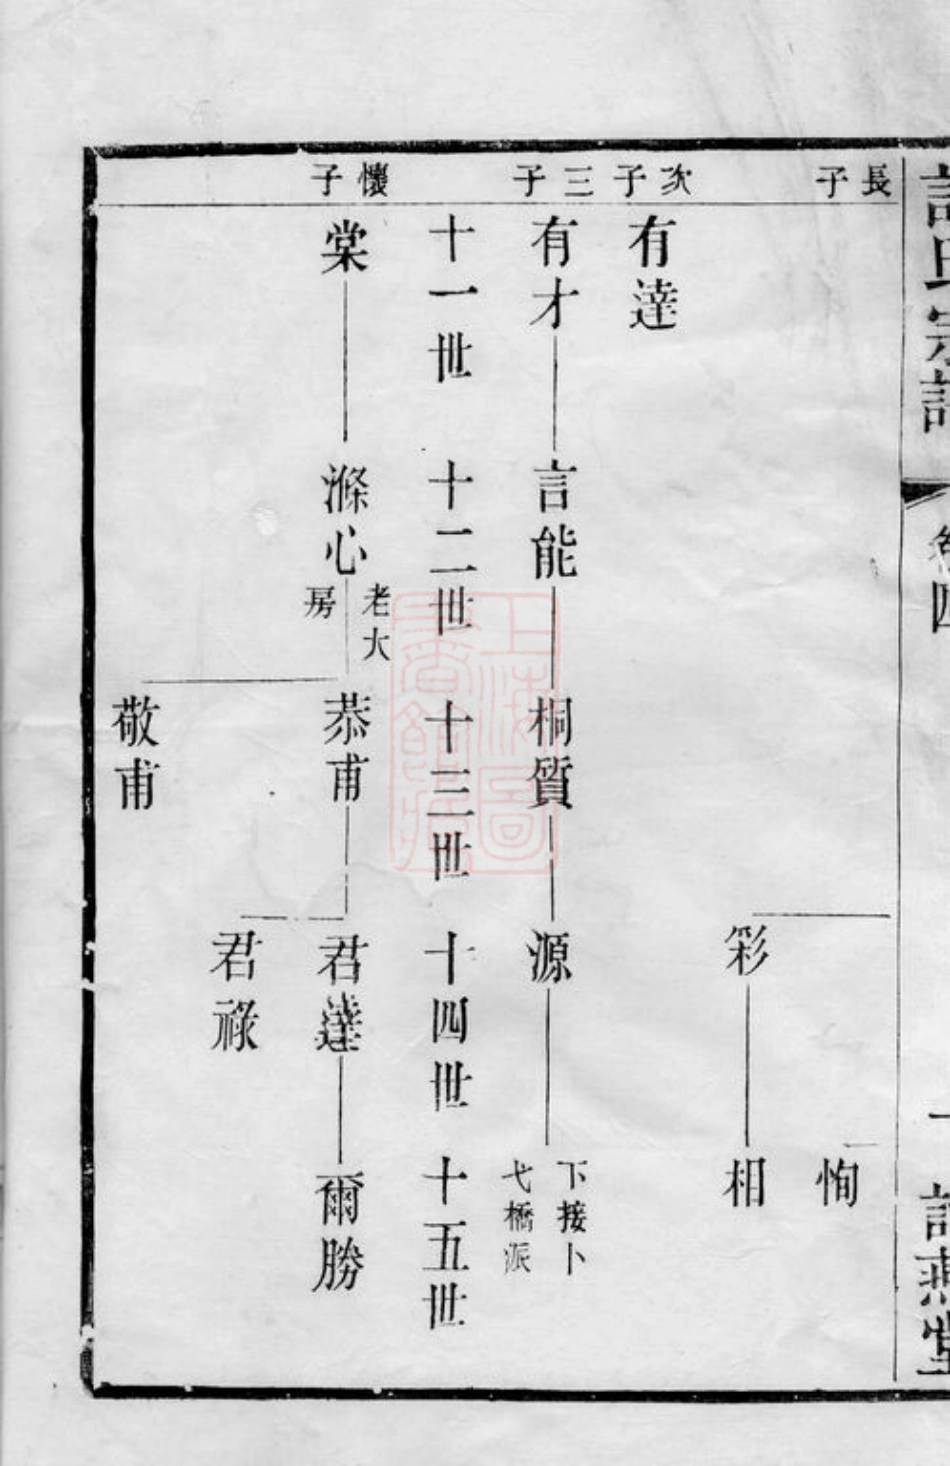 長子
恂
彩
相
次子
有達
三子
有才
言能
桐質
源
下接卜
弋橋派
十一世
十二世
十三世
十四世
十五世
懷子
棠
滌心
老大
房
恭甫
君達
爾勝
君祿
敬甫